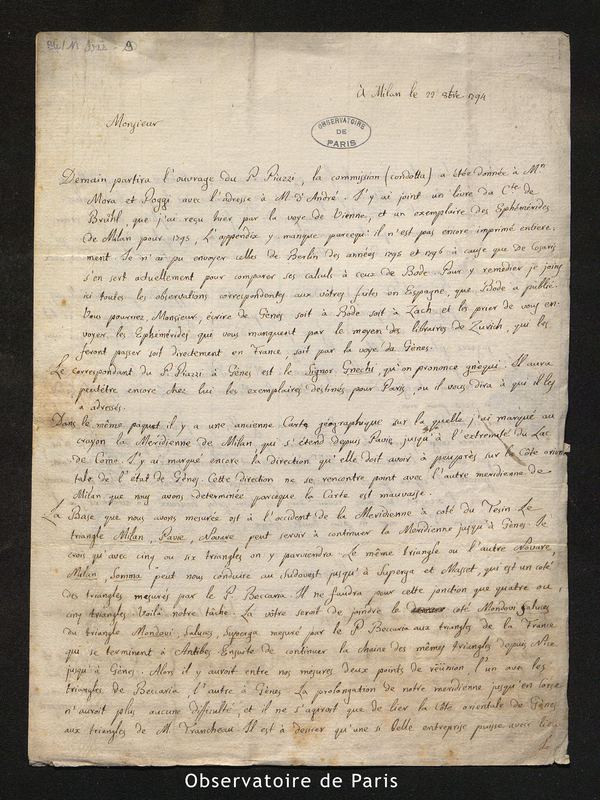 à Milan le 22 8bre 1794
OBSERVATOIRE
DE
PARIS
Monsieur
Demain partira l'ouvrage du P. Piazzi, la commission (condotta) a étée donnée à Mrs
Mora et Poggi avec l'adresse à M. d'André. J'y ai joint un livre du Cte de
Brühl, que j'ai reçu hier par la voye de Vienne, et un exemplaire des Ephémérides
de Milan pour 1795, L'appendix y manque parcequ'il n'est pas encore imprimé entiere,
ment. Je n'ai pu envoyer celles de Berlin des années 1795 et 1796 à cause que De Cesaris
s'en sert actuellement pour comparer ses calculs à ceux de Bode. Pour y remedier je joins
ici toutes les observations correspondentes aux vôtres faites en Espagne, que Bode a publié.
Vous pourrez, Monsieur, écrire de Gènes soit à Bode soit à Zach, et les prier de vous en-
voyer les Ephémérides qui vous manquent par le moyen des libraires de Zurich, qui les
feront passer soit directement en France, soit par la voye de Gènes.
Le correspondant du P. Piazzi à Gènes est le Signor Gnechi, qu'on prononce gnèqui. Il aura
peutétre encore chez lui les exemplaires destinés pour Paris, ou il vous dira à qui il les
a adressés.
Dans le même paquet il y a une ancienne Carte géographique sur la quelle j'ai marqué au
crayon la Meridienne de Milan qui s'étend depuis Pavie jusqu'à l'extremité du Lac
de Come. J'y ai marqué encore la direction qu'elle doit avoir à peuprès sur la Côte orien
tale de l'état de Gènes. Cette direction ne se rencontre point avec l'autre meridienne de
Milan que nous avons determinée parceque la Carte est mauvaise.
La Base que nous avons mesurée est à l'occident de la Meridienne à coté du Tesin. Le
triangle Milan, Pavie, Novare peut servir à continuer la Meridienne jusqu'à Gènes. Je
crois qu'avec cinq ou six triangles on y parviendra. Le même triangle ou l'autre Novare,
Milan, Somma peut nous conduire au Sudouest jusqu'à Superga et Masset, qui est un coté
des triangles mesurés par le P. Beccaria. Il ne faudra pour cette jonction que quatre ou
cinq triangles. Voilà notre tâche. La vôtre seroit de joindre le coté Mondovi Saluces
du triangle Mondovi, Saluces, Superga mesuré par le P. Beccaria aux triangles de la France
qui se terminent à Antibes. Ensuite de continuer la chaine des mêmes triangles depuis Nice
jusqu'à Gènes. Alors il y auroit entre nos mesures deux points de réünion, l'un avec les
triangles de Beccaria, l'autre à Gènes. La prolongation de notre meridienne jusqu'en Corse
n'auroit plus aucune difficulté, et il ne s'agiroit que de lier la Côte orientale de Gènes
aux triangles de M. Trancheau. Il est à desirer qu'une si belle entreprise puisse avoir lieu
Observatoire de Paris